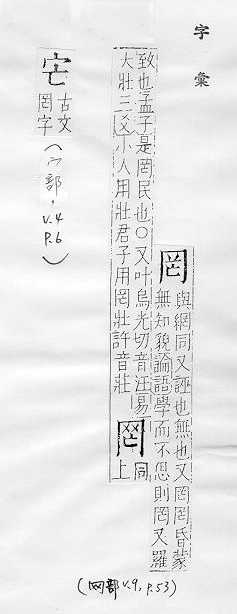 字彙
罔
與網同又誣也無也又罔罔昏蒙
無知貌論語學而不思則罔又羅
致也孟子是罔民也〇又叶烏光切音汪易
大壯三爻小人用壯君子用罔壯許音莊
同
上
(网部 v.9, p.53)
古文
罔字
(宀部, v.4 p.6)